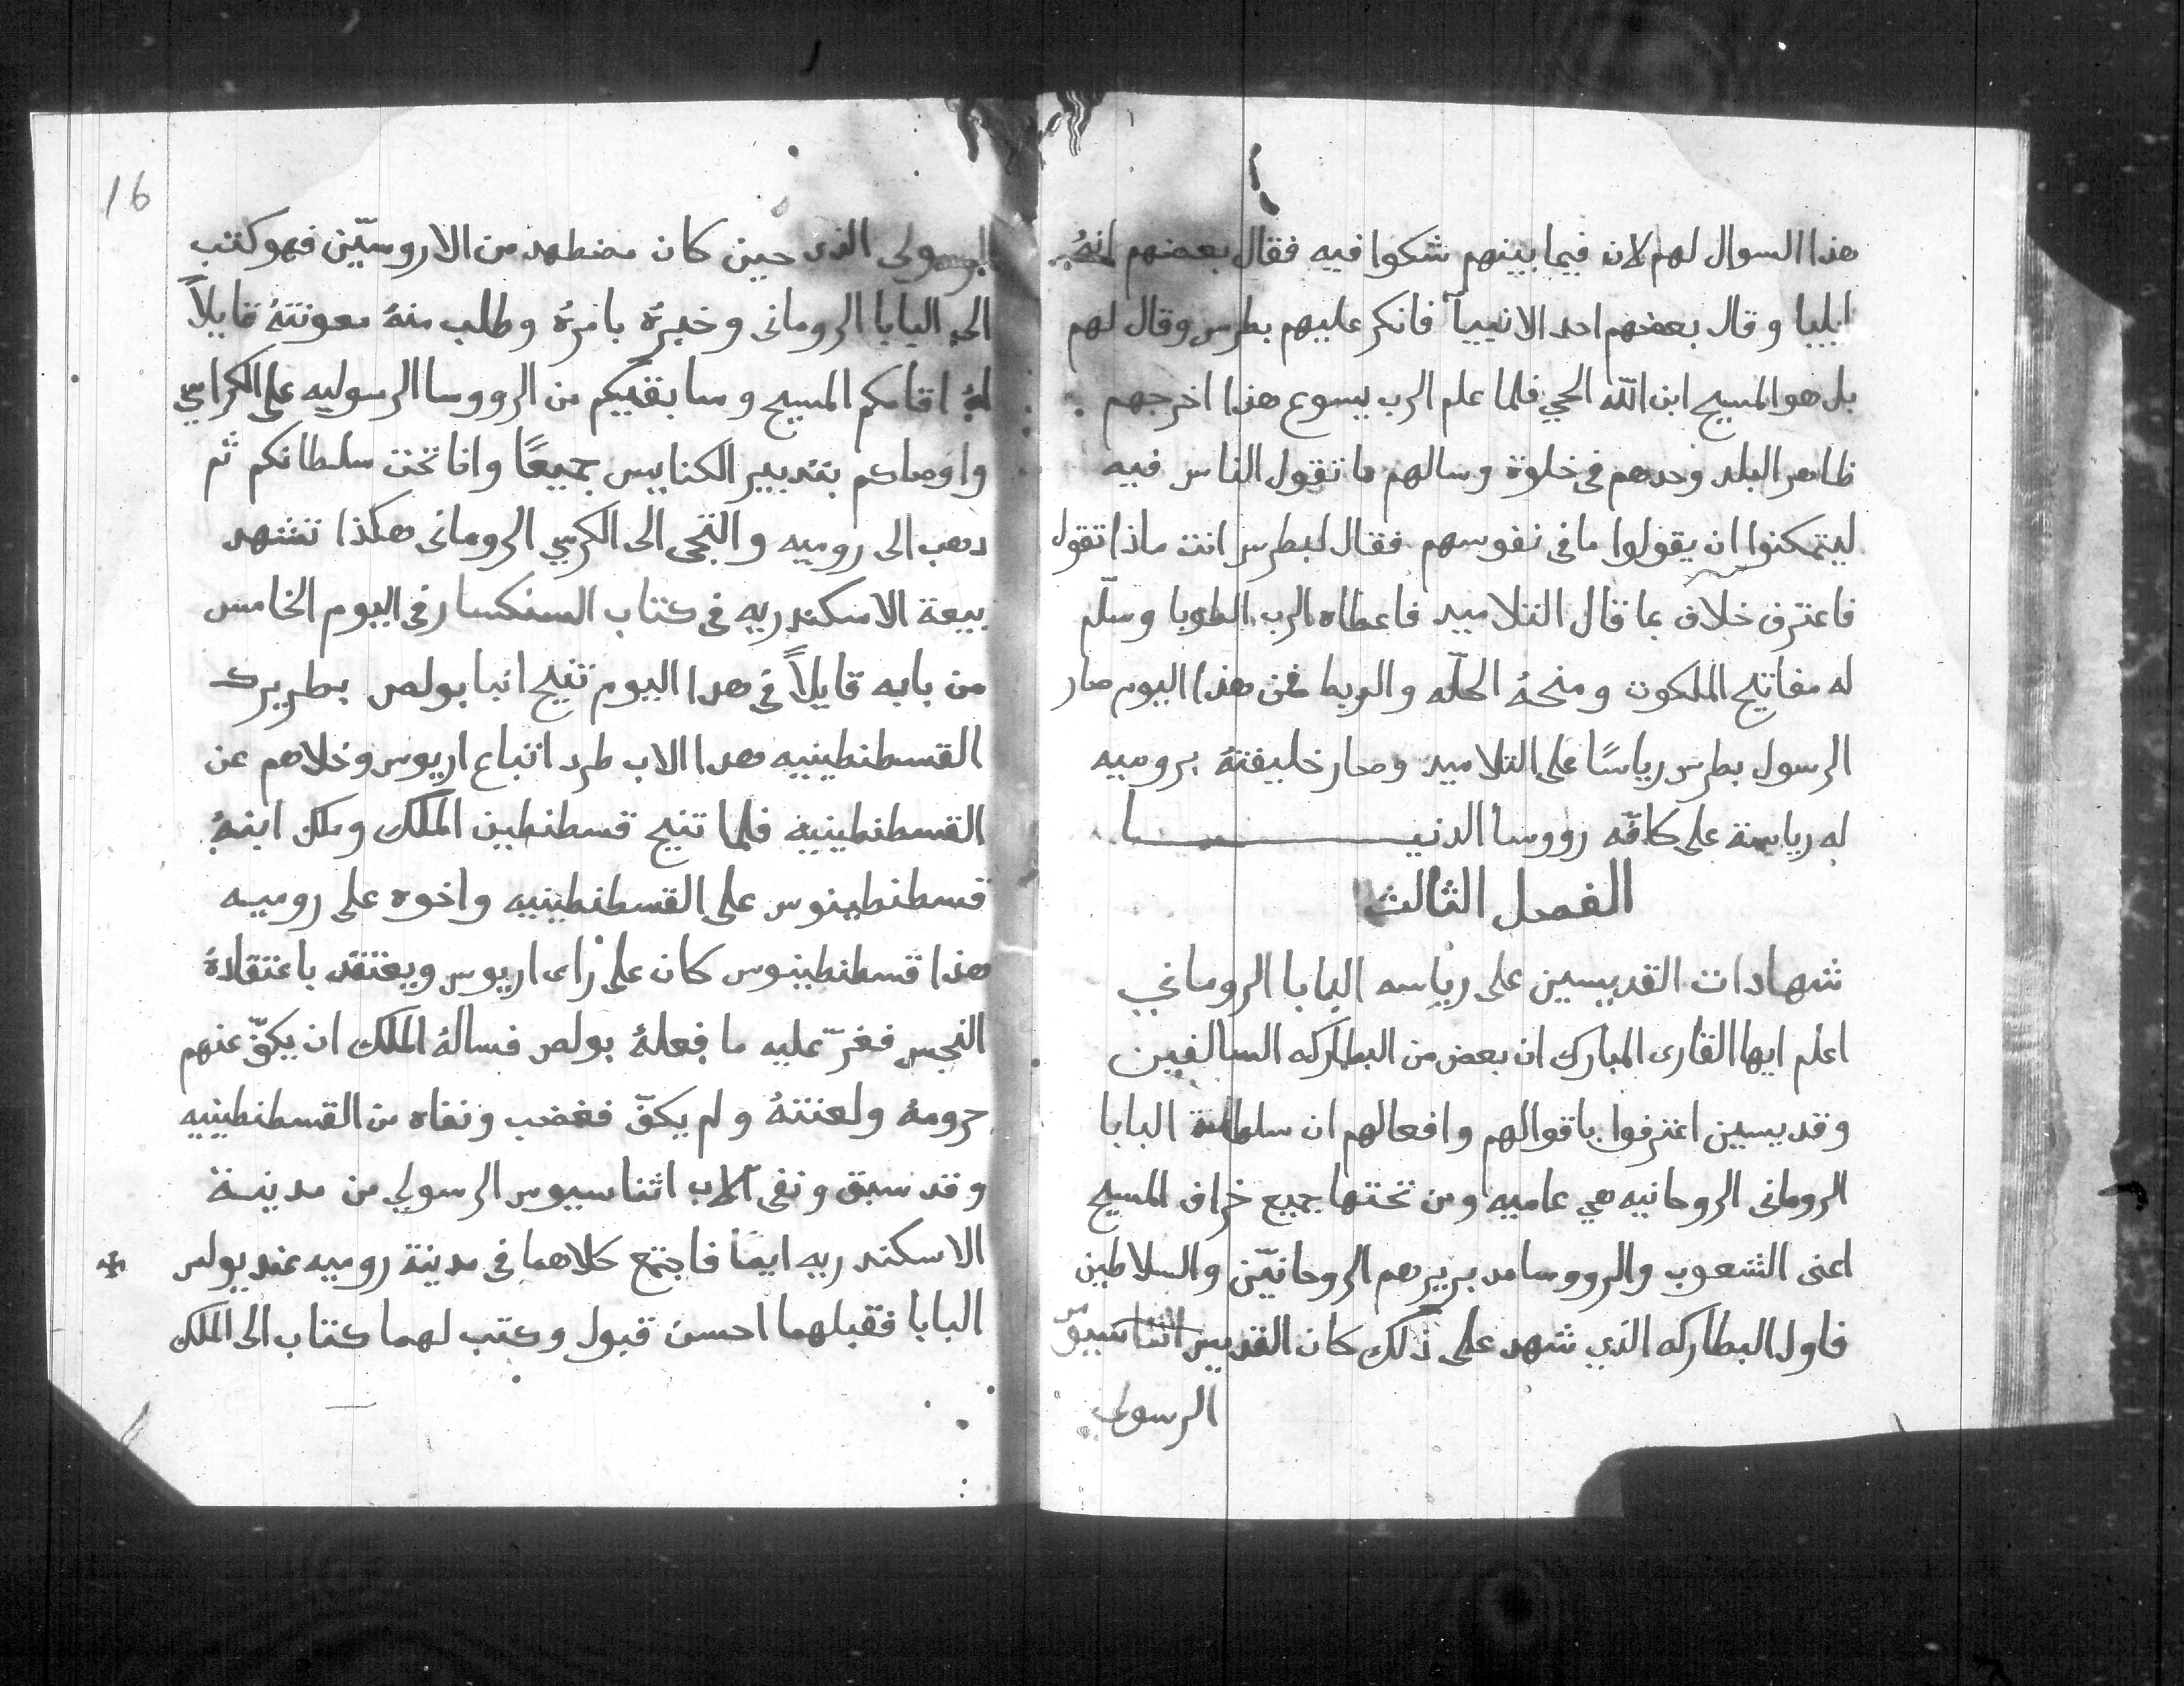 هذا السوال لهم لان فيما بينهم شكوا فيه فقال بعضهم انهُ
ايليا وقال بعضهم احد الانبياً فانكر عليهم بطرس وقال لهم
بل هو المسيح ابن اللّه الحي فلما علم الرب يسوع هذا اخرجهم
ظاهر البلد وحدهم في خلوة وسالهم ما تقول الناس فيه
ليتمكنوا ان يقولوا ما في نفوسهم فقال لبطرس انت ماذا تقول
فاعترف خلاف بما قال التلاميد فاعطاه الرب الطوبا وسلّم
له مفاتيح الملكوت ومنحهُ الحلّه والربط فمن هذا اليوم صار
الرسول بطرس رياسًا على التلاميد وصار خليفتهُ بروميه
له رياسة على كافّه رووسا الدنيا
الفصل الثالث
شهادات القديسين على رياسه البابا الروماني
اعلم ايها القارى المبارك ان بعض من البطاركه السالفين
وقديسين اعترفوا باقوالهم وافعالهم ان سلطانة البابا
الرومانى الروحانيه هي عاميه ومن تحتها جميع خراف المسيح
اعنى الشعوب والرووسا مدبريرهم الروحانيّن والسلاطين
فاول البطاركه الذي شهد على ذلك كان القديس اثناسيوّ
الرسولي
16
الرسولى الذى حين كان مضطهد من الاروسيّن فهو كتب
الى البابا الرومانى وخبرهُ بامرهُ وطلب منهُ معونتهُ قايلاً
لهُ اقامكم المسيح وسابقيكم من الرووسا الرسوليه على الكراسي
واوصاكم بتدبير الكنايس جميعًا وانا تحت سلطانكم ثم
دهب الى روميه والتجى الى الكرسي الرومانى هكذا تشهد
بيعة الاسكندريه فى كتاب السنكسار فى اليوم الخامس
من بابه قايلاً في هدا اليوم تنيح انبا بولص بطريرك
القسطنطينيه هدا الاب طرد اتباع اريوس وخلاهم عن
القسطنطينيه فلما تنيح قسطنطين الملك وملك ابنهُ
قسطنطينوس على القسطنطينيه واخوه على روميه
هذا قسطنطينوس كان على راى اريوس ويعتقد باعتقادهُ
النجس فغرّ عليه ما فعلهُ بولص فسالهُ الملك ان يكفّ عنهم
حرومهُ ولعنتهُ ولم يكفّ فغضب ونفاه من القسطنطينيه
وقد سبق ونفى الاب اثناسيوس الرسولي من مدينة
الاسكندريه ايضًا فاجتمع كلاهما فى مدينة روميه عند يوليوس
البابا فقبلهما احسن قبول وكتب لهما كتاب الى الملك